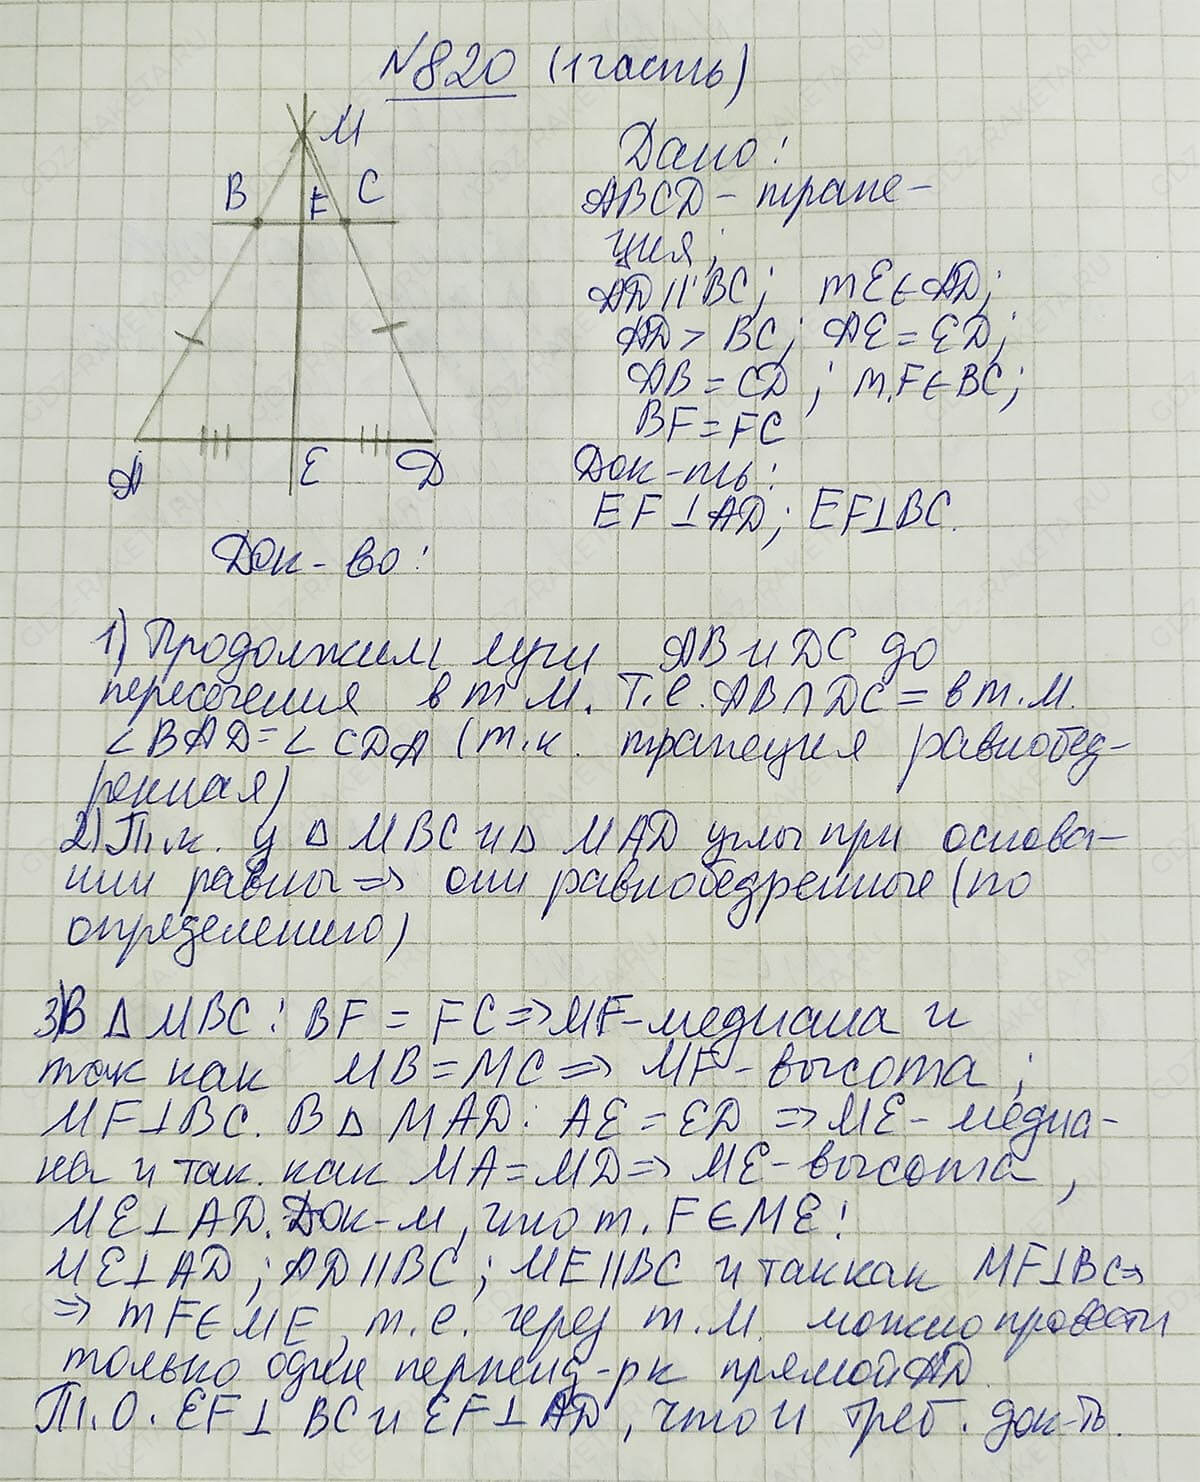 №820 (1 часть)
M
B F C
A E D
Дано:
ABCD - трапе-
ция;
AD || BC; т E ∈ AD;
AD > BC; AE = ED;
AB = CD; т. F ∈ BC;
BF = FC
Док-ть:
EF ⊥ AD; EF ⊥ BC.
Док-во:
1) Продолжим лучи AB и DC до
пересечения в т M. Т.е. AB ∩ DC = в т. M.
∠BAD = ∠CDA (т.к. трапеция равнобед-
ренная)
2) Т.к. у △ MBC и △ MAD углы при основа-
нии равны => они равнобедренные (по
определению)
3) В △ MBC: BF = FC => MF - медиана и
так как MB = MC => MF - высота;
MF ⊥ BC. В △ MAD: AE = ED => ME - медиа-
на и так. как MA = MD => ME - высота,
ME ⊥ AD. Док-м, что т. F ∈ ME!
ME ⊥ AD; AD || BC; ME || BC и так как MF ⊥ BC =>
=> т F ∈ ME, т.е. через т. M. можно провести
только один перпенд-рк прямой AD.
Т.О. EF ⊥ BC и EF ⊥ AD, что и треб. док-ть.